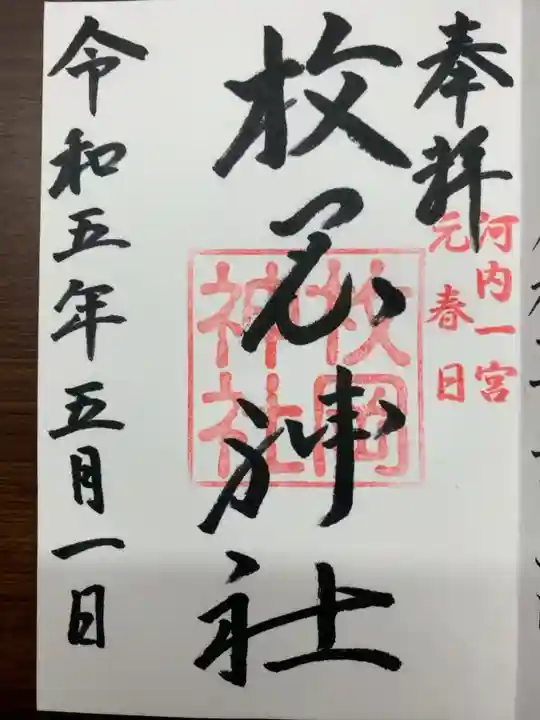 奉拝
河内一宮
元春日
枚岡神社
枚岡
神社
令和五年五月一日